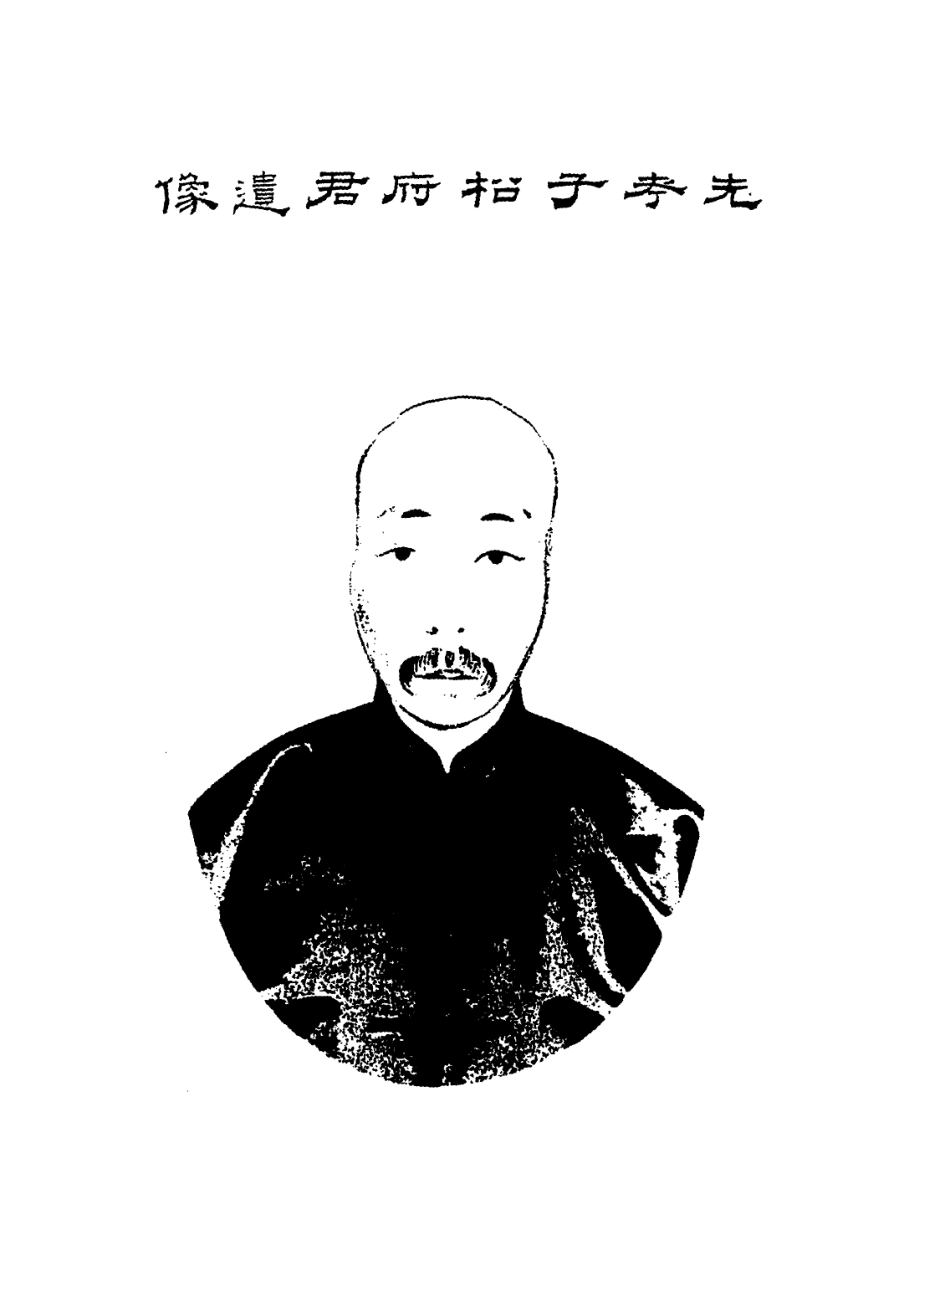 先考子柗府君遺像